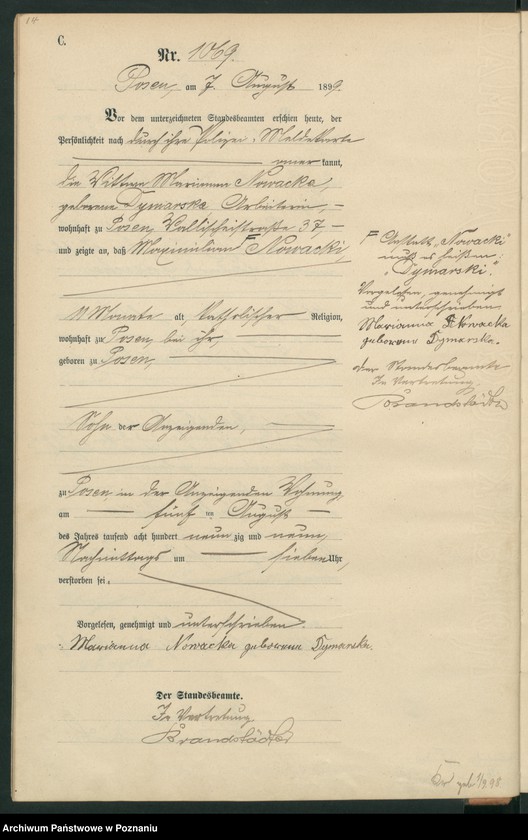 14
C.
Nr. 1069.
Posen, am 7. August 1899.
Vor dem unterzeichneten Standesbeamten erschien heute, der
Persönlichkeit nach durch ihre Polizei-Meldekarte
anerkannt,
die Wittwe Marianna Nowacka,
geborene Dymarska, Arbeiterin,
wohnhaft zu Posen, Wallischeistraße 37
und zeigte an, daß Maximilian Nowacki,
11 Monate alt, katholischer Religion,
wohnhaft zu Posen, bei ihr,
geboren zu Posen,
Sohn der Anzeigenden,
zu Posen in der Anzeigenden Wohnung
am fünften August
des Jahres tausend acht hundert neunzig und neun,
Nachmittags um sieben Uhr,
verstorben sei.
Vorgelesen, genehmigt und unterschrieben.
Marianna Nowacka geborene Dymarska.
Der Standesbeamte.
In Vertretung
Brandstädter
Anstatt „Nowacki"
muß es heißen:
„Dymarski".
Vorgelesen, genehmigt
und unterschrieben
Marianna Nowacka
geborene Dymarska.
der Standesbeamte
In Vertretung.
Brandstädter
geb.
Archiwum Państwowe w Poznaniu